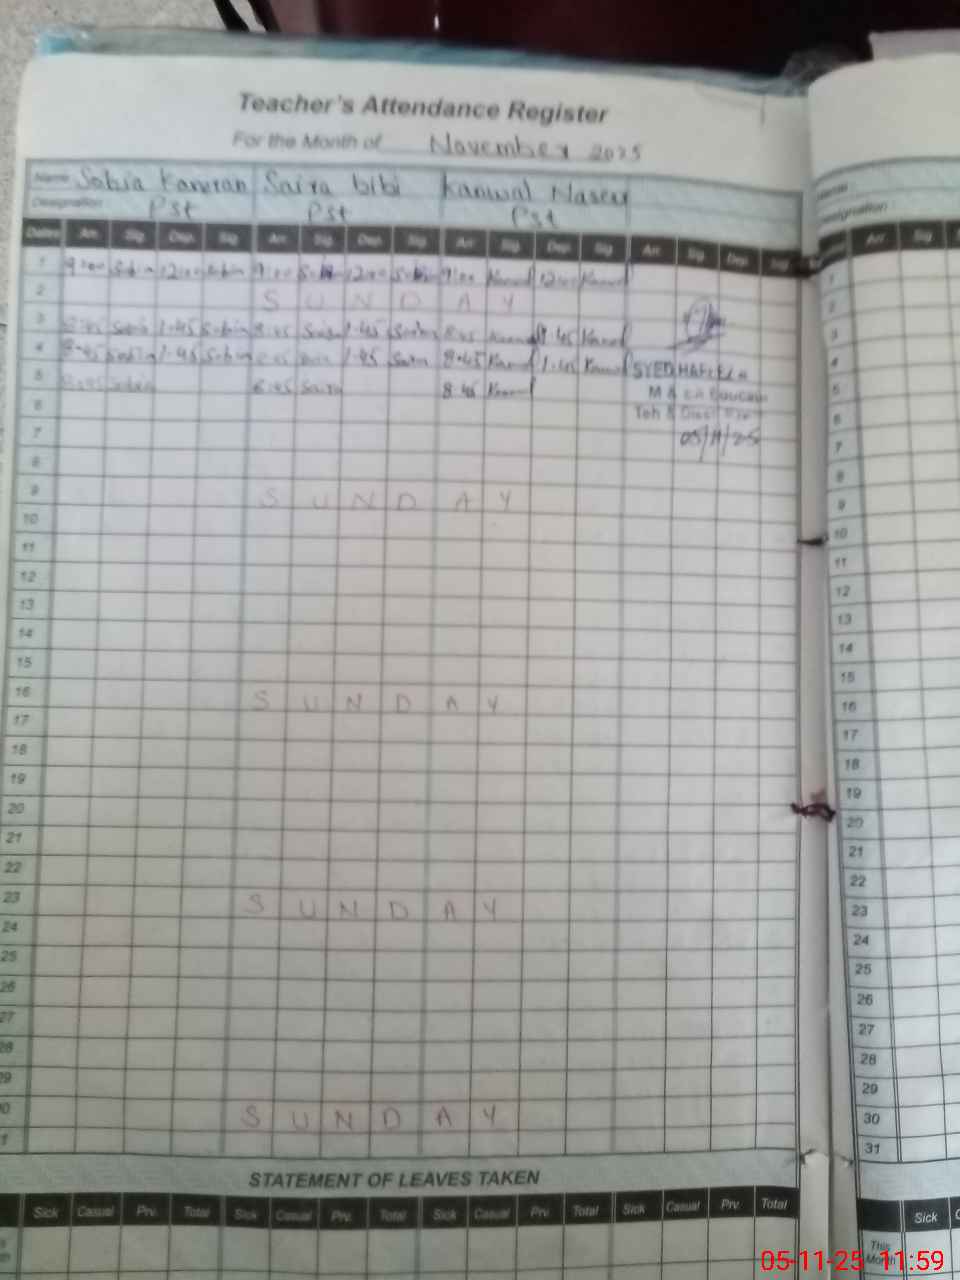 Teacher's Attendance Register
For the Month of November 2025
Name Sobia Kamran Saira bibi Kanwal Naseer
Designation Pst Pst Pst
Dates Arr. Sig. Dep. Sig. Arr. Sig. Dep. Sig. Arr. Sig. Dep. Sig. Arr. Sig. Dep. Sig.
1 9:00 Sobia 12:00 Sobia 9:00 12:00 9:00 Kanwal 12:00 Kanwal
2 S U N D A Y
3 8:45 Sobia 1:45 Sobia 8:45 Saira 1:45 Saira 8:45 Kanwal 1:45 Kanwal
4 8:45 Sobia 1:45 Sobia 8:45 Saira 1:45 Saira 8:45 Kanwal 1:45 Kanwal
SYED
5 8:45 Sobia 8:45 Saira 8:45 Kanwal
M & EA
6
7
05/11/25
8
9 S U N D A Y
10
11
12
13
14
15
16 S U N D A Y
17
18
19
20
21
22
23 S U N D A Y
24
25
26
27
28
29
30 S U N D A Y
STATEMENT OF LEAVES TAKEN
Sick Casual Prv. Total Sick Casual Prv. Total Sick Casual Prv. Total Sick Casual Prv. Total
Name
Designation
Dates Arr. Sig
1
2
3
4
5
6
7
8
9
10
11
12
13
14
15
16
17
18
19
20
21
22
23
24
25
26
27
28
29
30
31
Sick
This Month
05-11-25 11:59